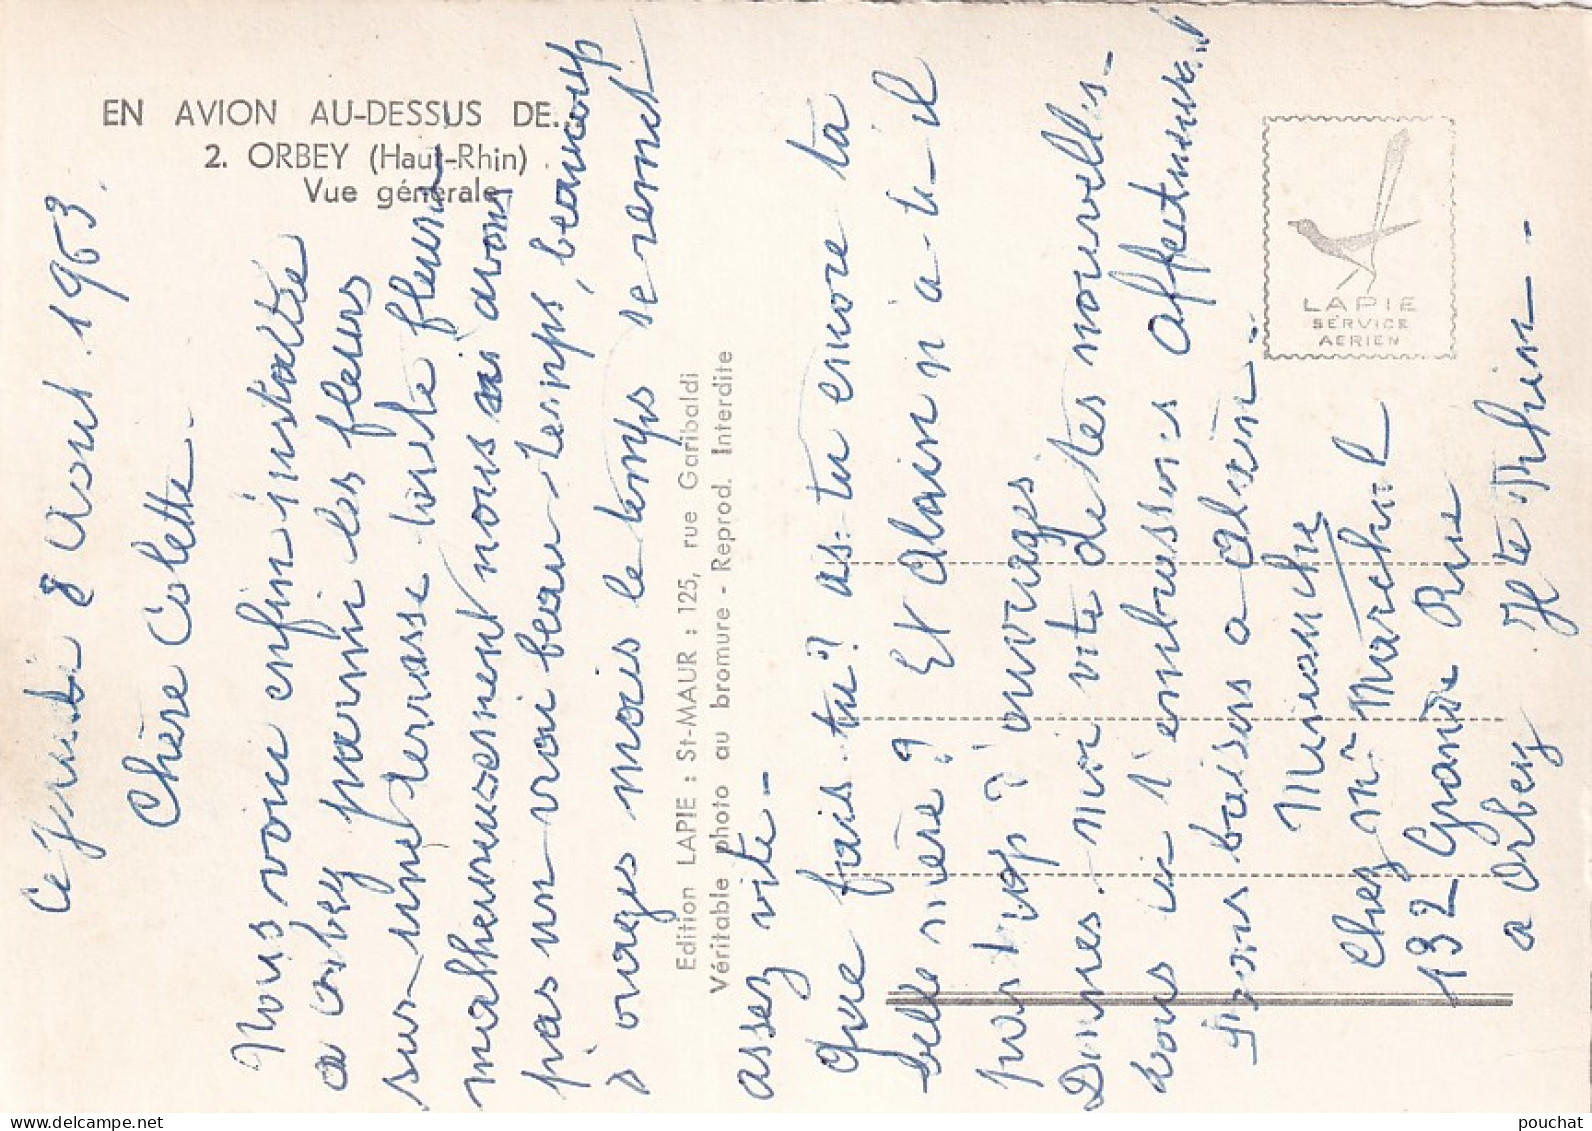 EN AVION AU-DESSUS DE...
2. ORBEY (Haut-Rhin)
Vue générale
Ce Jeudi 8 Aout 1963.
Chère Colette.
Nous voici enfin installée
a orbey parmi les fleurs
sur une terrasse toute fleurie
malheureusement nous avons
pas un vrai beau temps, beaucoup
d'orages mais le temps se remet
assez vite -
Que fais-tu? as-tu encore ta
belle mère? Et Alain n'a-t-il
pas trop d'ouvrages
Donnes-moi vite de tes nouvelles -
nous t'embrassons affectueusement
Bons baisers a Alain.
Chez Mr Marchal
132 Grande Rue
a Orbey Hte Rhin -
Edition LAPIE : St-MAUR : 125, rue Garibaldi
Véritable photo au bromure - Reprod. Interdite
LAPIE
SERVICE
AERIEN
delcampe.net
pouchat